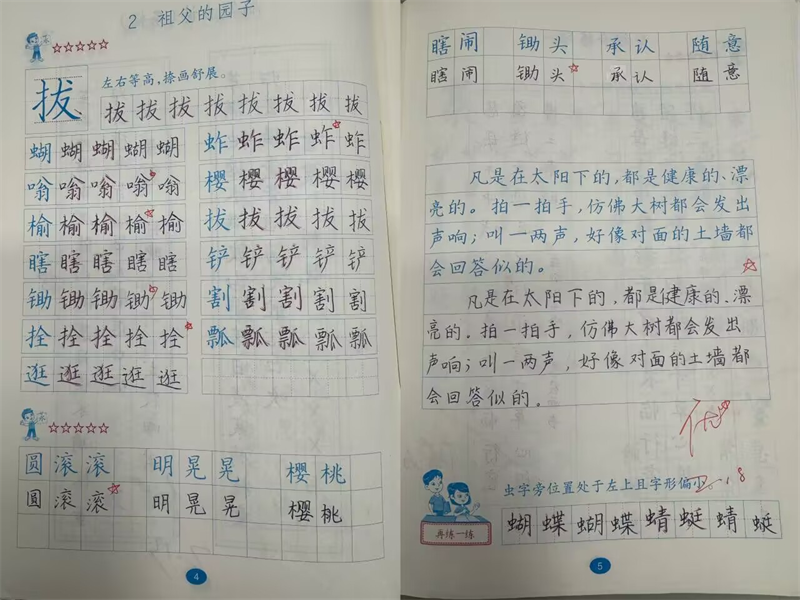 2 祖父的园子
左右等高,捺画舒展。
拔 拔 拔 拔 拔 拔 拔 拔 拔
蝴 蝴 蝴 蝴 蝴 蚱 蚱 蚱 蚱 蚱
嗡 嗡 嗡 嗡 嗡 樱 樱 樱 樱 樱
榆 榆 榆 榆 榆 拔 拔 拔 拔 拔
瞎 瞎 瞎 瞎 瞎 铲 铲 铲 铲 铲
锄 锄 锄 锄 锄 割 割 割 割 割
拴 拴 拴 拴 拴 瓢 瓢 瓢 瓢 瓢
逛 逛 逛 逛 逛
圆 滚 滚 明 晃 晃 樱 桃
圆 滚 滚 明 晃 晃 樱 桃
4
瞎 闹 锄 头 承 认 随 意
瞎 闹 锄 头 承 认 随 意
凡是在太阳下的,都是健康的、漂
亮的。拍一拍手,仿佛大树都会发出
声响;叫一两声,好像对面的土墙都
会回答似的。
凡是在太阳下的,都是健康的、漂
亮的。拍一拍手,仿佛大树都会发出
声响;叫一两声,好像对面的土墙都
会回答似的。
优
虫字旁位置处于左上且字形偏小
再练一练
蝴 蝶 蝴 蝶 蜻 蜓 蜻 蜓
5